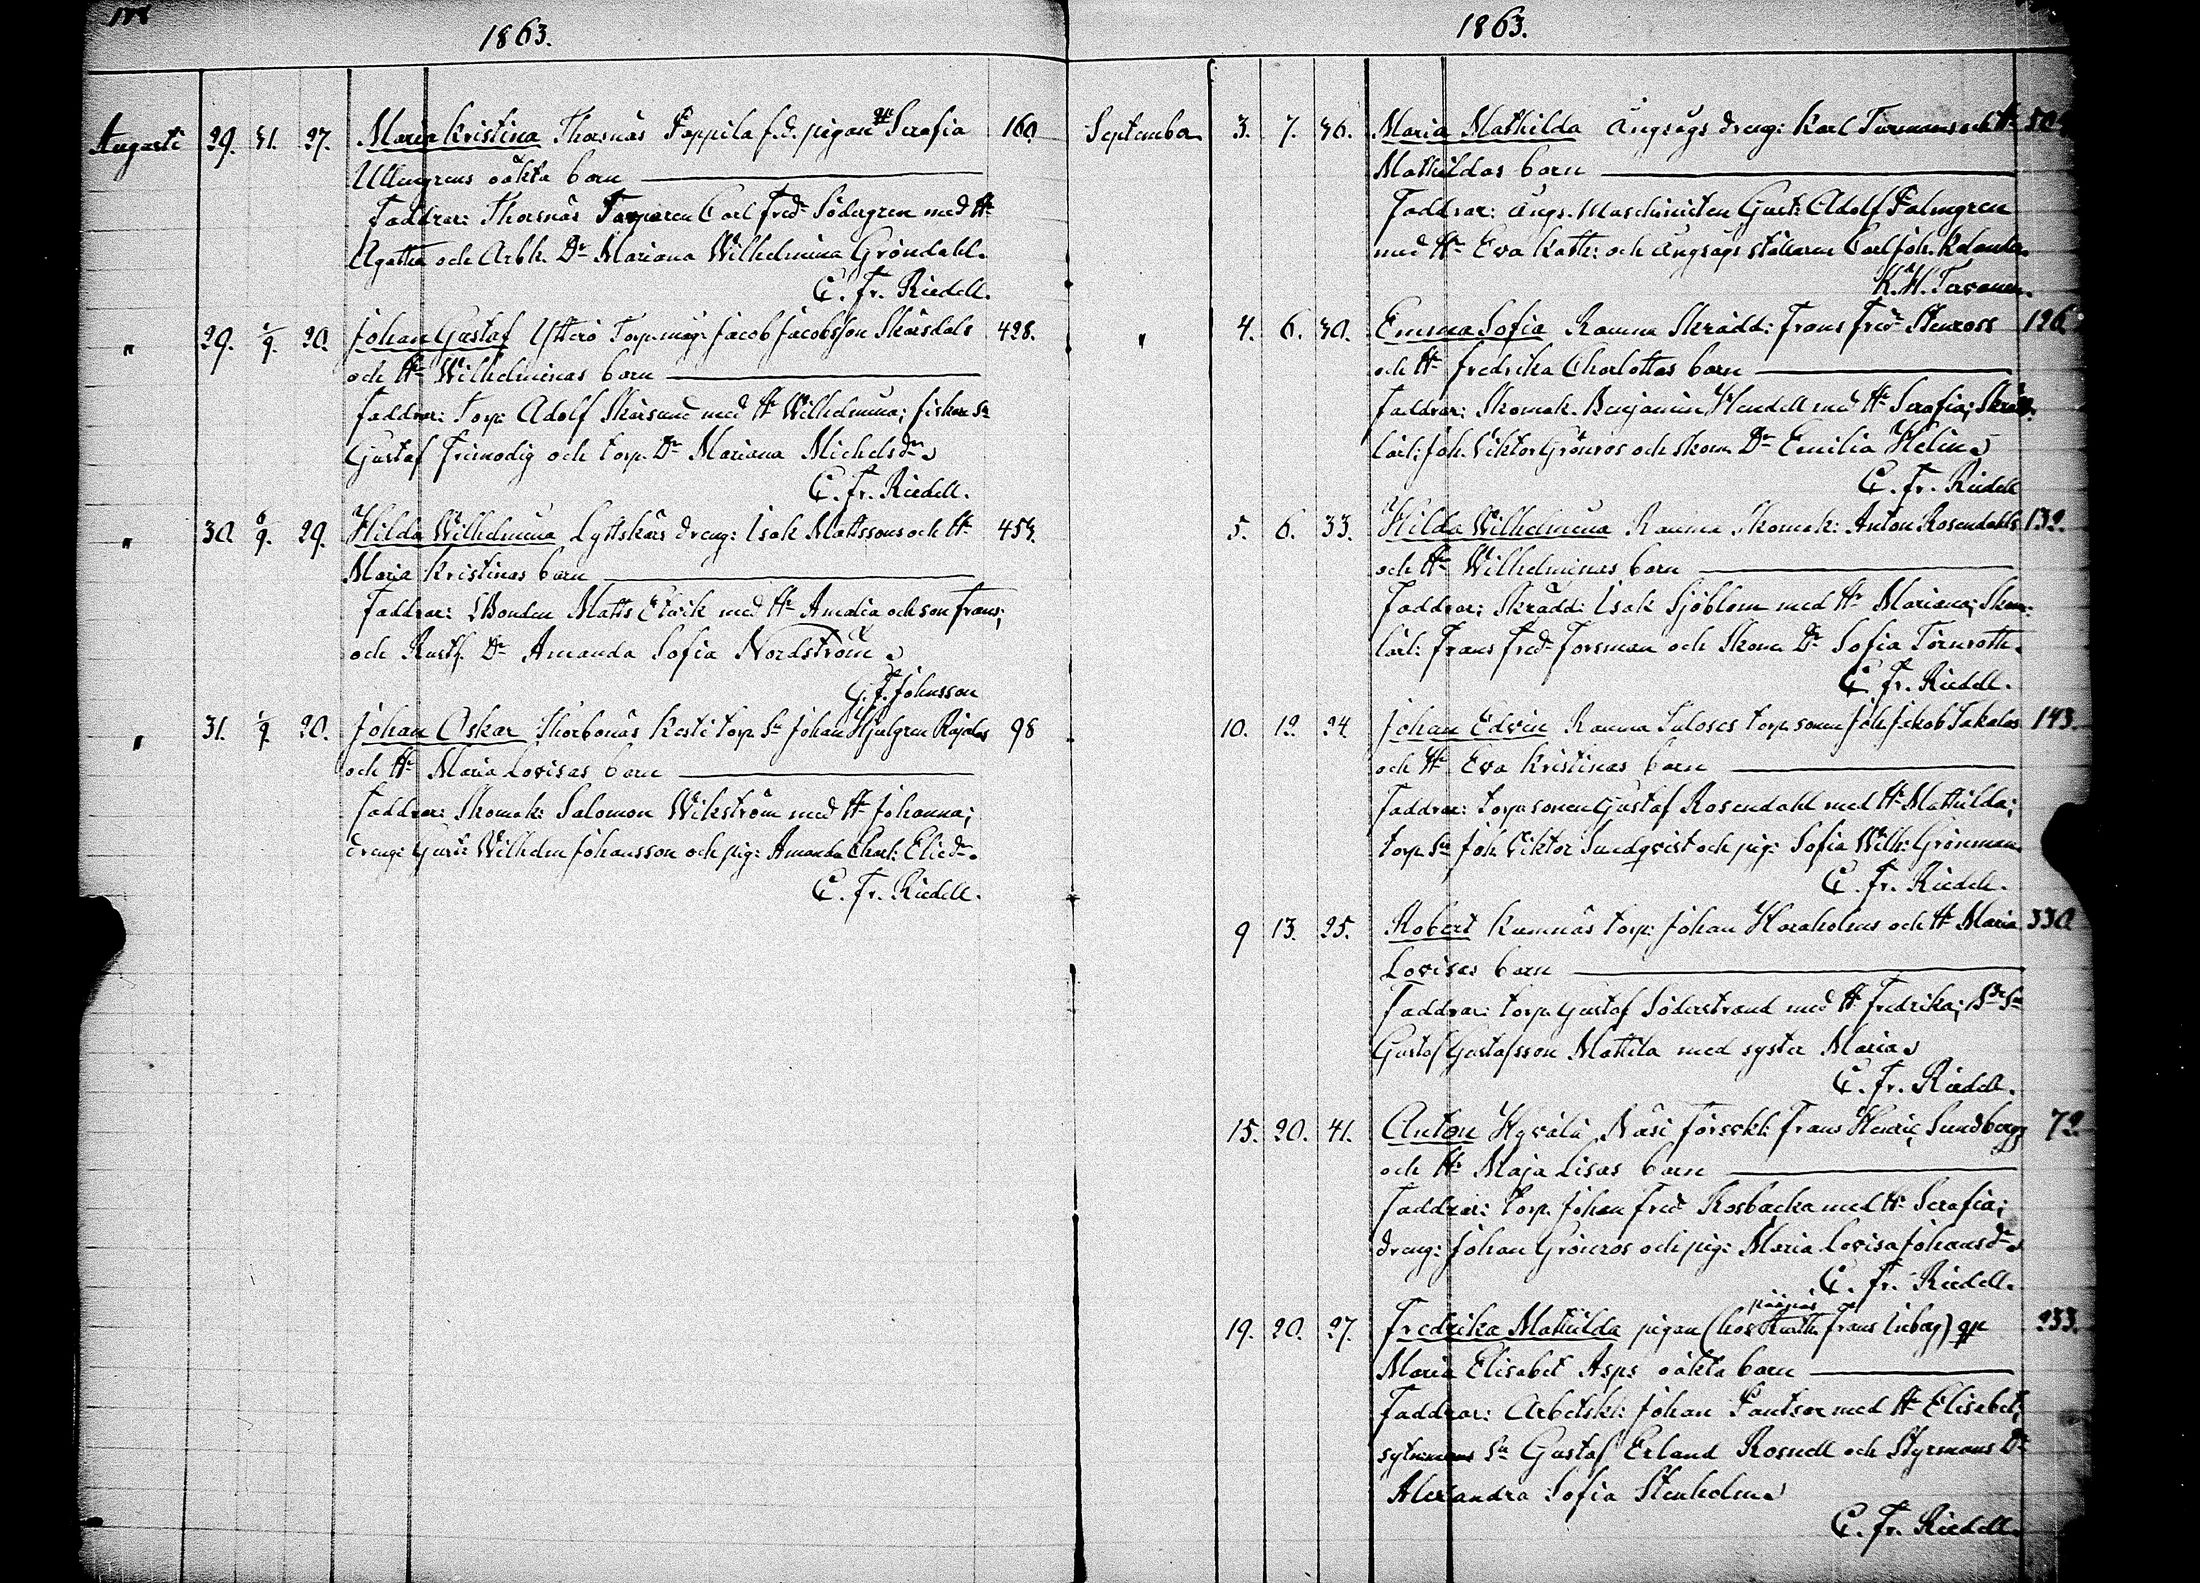 1863.
Augusti 29. 31. 27. Maria Kristina Thorsnäs Poppila f.d. pigan Serafia 160
Ullengrens oäkta barn
Faddrar: Thorsnäs Torparen Carl Fred. Södergren med H:
Agatha och Arbk. Dr Mariana Wilhelmina Gröndahl.
C. Fr. Riedell.
" 29. 1/9. 20. Johan Gustaf Ytterö Torp.måg. Jacob Jacobsson Skärsdals 428.
och H: Wilhelminas barn
Faddrar: Torp. Adolf Skärsund med H: Wilhelmina; fiskar Sn
Gustaf Frimodig och torp. Dr Mariana Michelsdr
C. Fr. Riedell.
" 30. 6/9. 29. Hilda Wilhelmina Lyttskärs dreng: Isak Mattssons och H: 453.
Maria Kristinas barn
Faddrar: Bonden Matts Elwik med H: Amalia och son Frans;
och Rusth. Dr Amanda Sofia Nordström
G. F. Johnsson
" 31. 1/9 20. Johan Oskar Thorbonäs Kesti torp. Sn Johan Hjulgren Rajalas 98
och H: Maria Lovisas barn
Faddrar: Skomak: Salomon Wikström med H: Johanna;
dreng: Gust: Wilhelm Johansson och pig: Amanda Charl: Eliedr.
C. Fr. Riedell.
1863.
September 3. 7. 36. Maria Mathilda Ångsågs dreng: Karl Turmans och H: 50
Mathildas barn
Faddrar: Ångs. Maschinisten Gust: Adolf Palmgren
med H: Eva Kath: och Ångsågs ställaren Carl Joh.
K. H. Tervonen.
" 4. 6. 30. Emma Sofia Rauma Skrädd: Frans Fred Stenross 126
och H: Fredrika Charlottas barn
Faddrar: Skomak. Benjamin Hendell med H: Serafia; Skrädd.
lärl: Joh. Viktor Grönros och skom. Dr Emilia Helin
C. Fr. Riedell
5. 6. 33. Hilda Wilhelmina Rauma Skomak: Anton Rosendahls 132.
och H: Wilhelminas barn
Faddrar; Skrädd: Isak Sjöblom med H: Mariana; Skom.
lärl: Frans Fred Forsman och Skom. Dr Sofia Törnroth.
C. Fr. Riedell.
10. 12. 24 Johan Edvin Rauma Sulosis torp.sonen Joh. Jakob Takalas 143.
och H: Eva Kristinas barn
Faddrar: torp.sonen Gustaf Rosendahl med H: Mathilda;
torp. Sn Joh. Viktor Smedqvist och pig: Sofia Wilh: Grönman.
C. Fr. Riedell.
9 13. 25. Robert Kumnäs torp: Johan Haraholms och H: Maria 330
Lovisas barn
Faddrar: torp. Gustaf Söderstrand med H: Fredrika; Bde Sn
Gustaf Gustafsson Mattila med syster Maria
C. Fr. Riedell.
15. 20. 41. Anton Hyvälä Näsi Försvkl: Frans Henric Sundbergs 72
och H: Maja Lisas barn
Faddrar: torp. Johan Fred Kosbacka med H: Serafia;
dreng: Johan Grönros och pig: Maria Lovisa Johansdr
C. Fr. Riedell.
19. 20. 27. Fredrika Mathilda pigan (hos Rusth. Frans Liberg) 233.
Maria Elisabet Asps oäkta barn
Faddrar: Arbetskl: Johan Pantsar med H: Elisabet;
sytninans Sn Gustaf Erland Rosnell och Styrmans Dr
Alexandra Sofia Stenholm
C. Fr. Riedell.